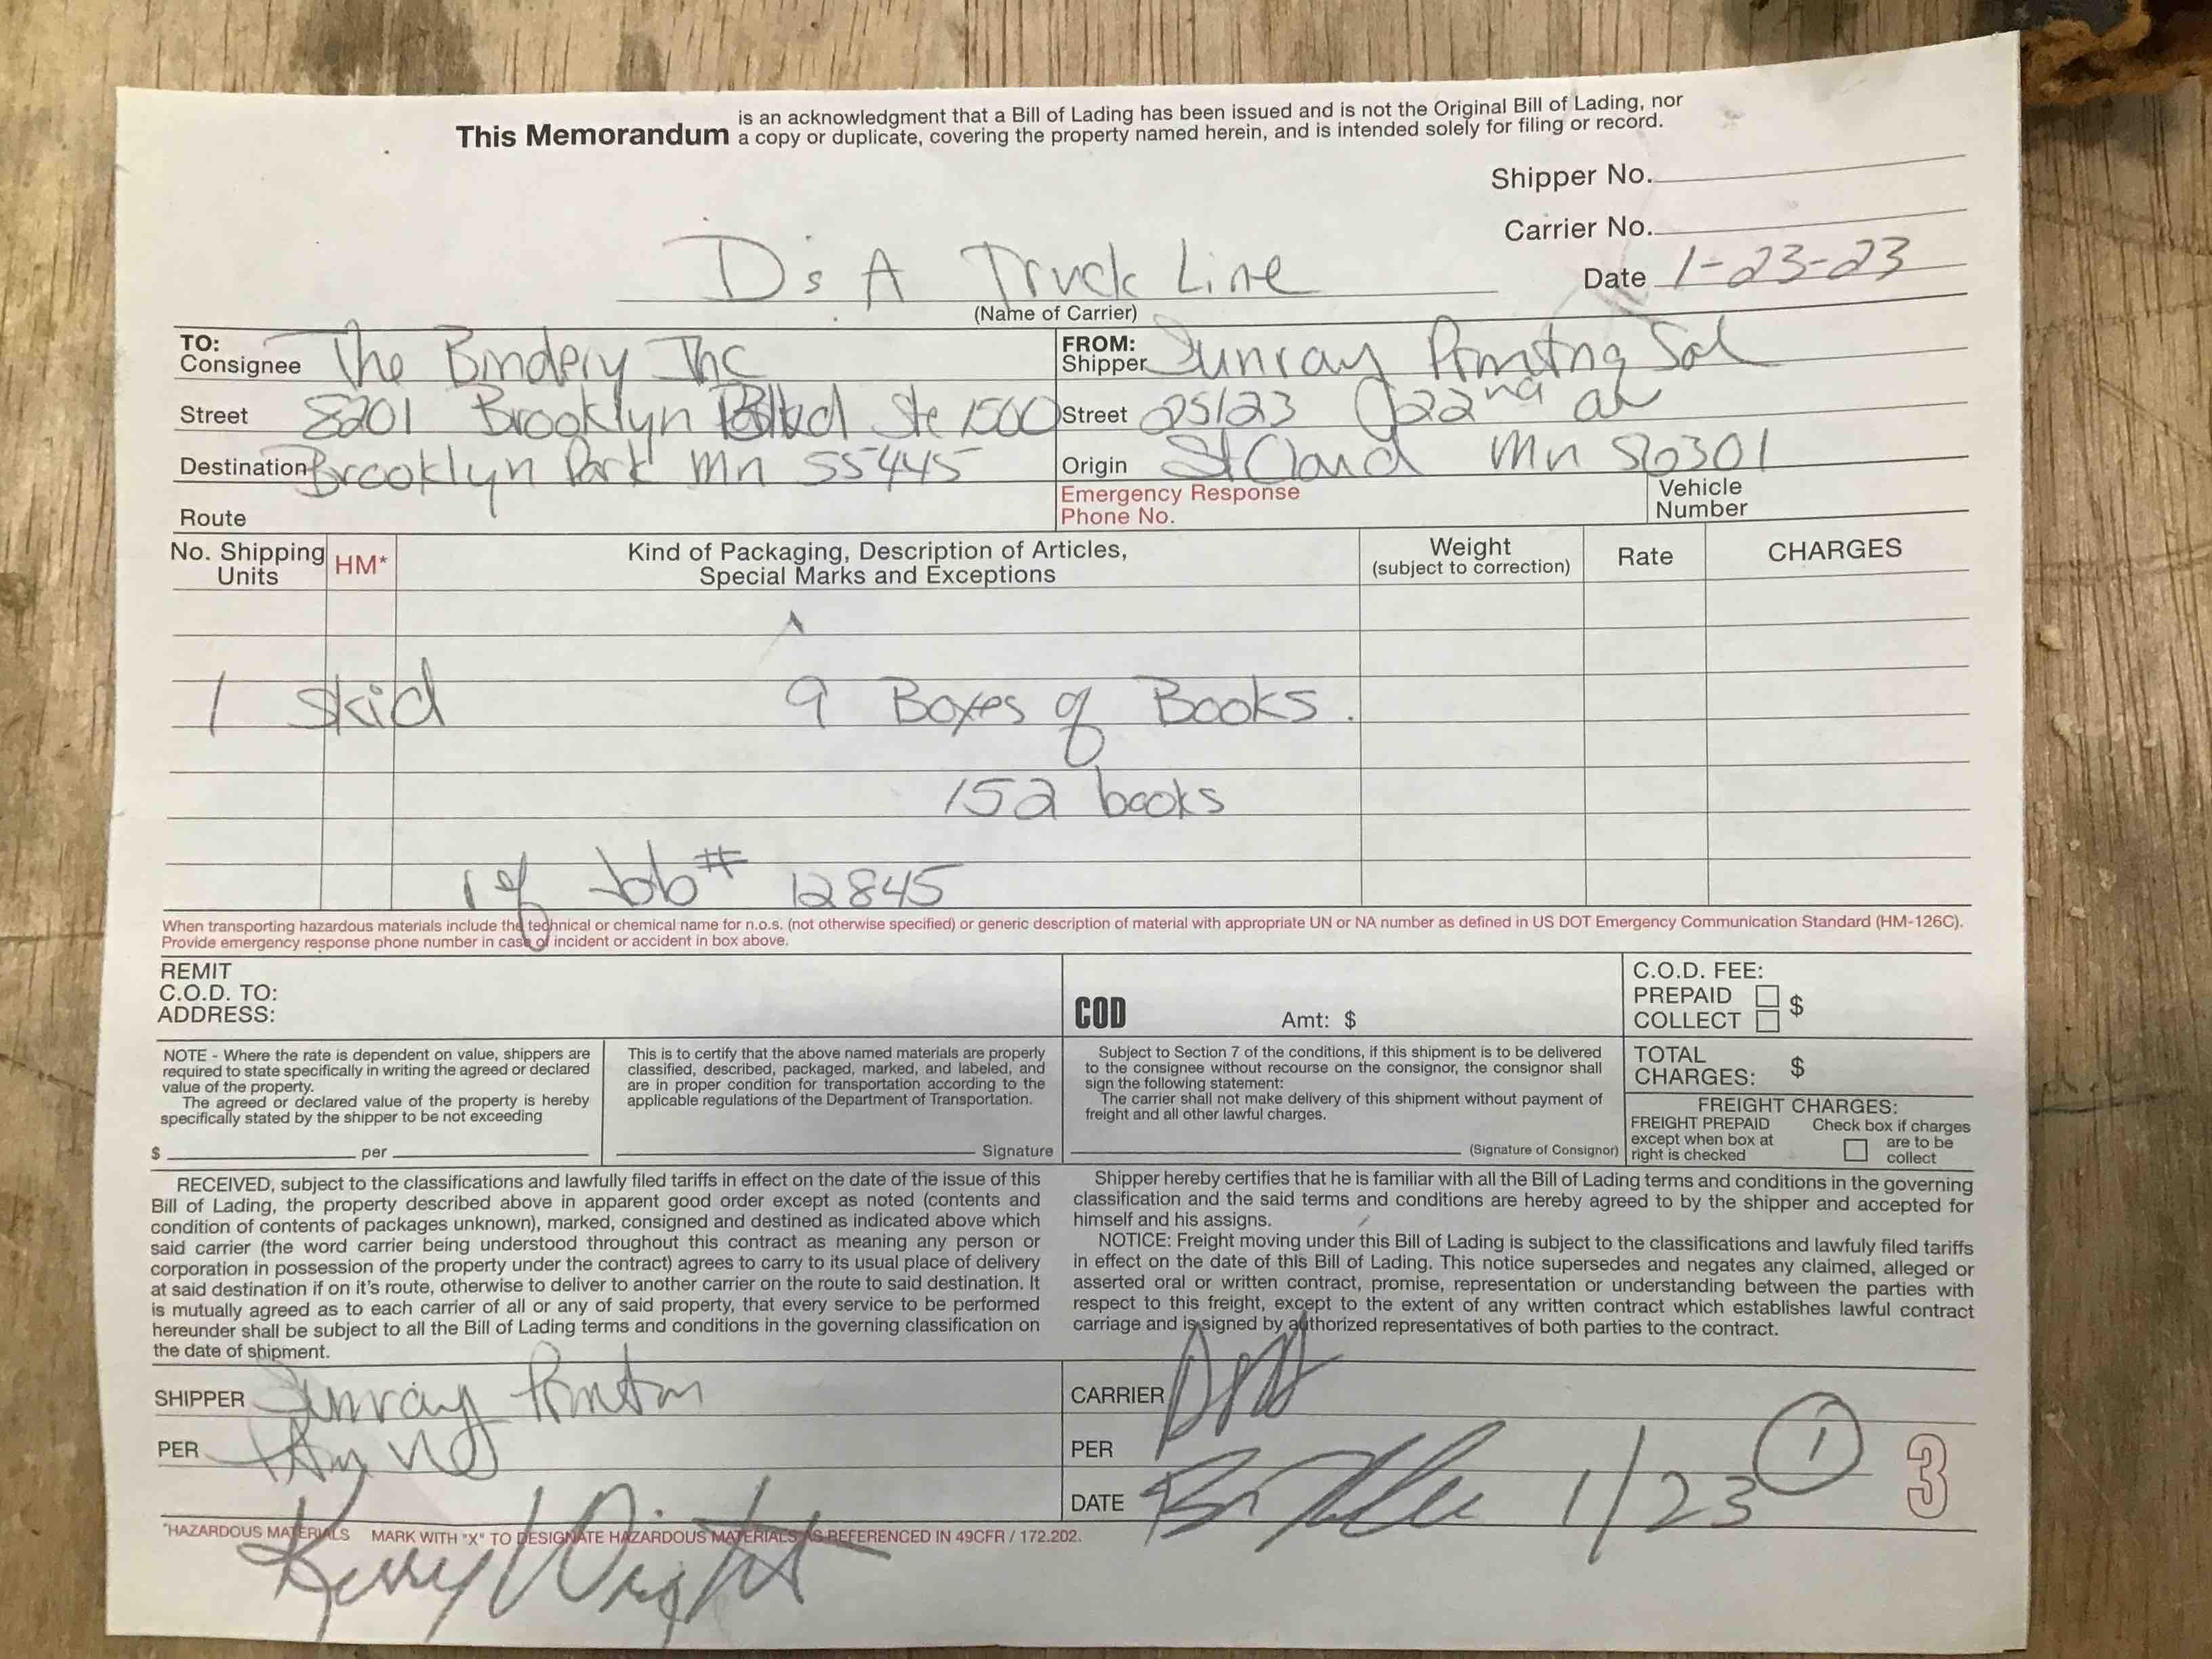 is an acknowledgment that a Bill of Lading has been issued and is not the Original Bill of Lading, nor
This Memorandum a copy or duplicate, covering the property named herein, and is intended solely for filing or record.
Shipper No.
Carrier No.
Date 1-23-23
Ds A Truck Line
(Name of Carrier)
TO:
Consignee The Bindery Inc
Street 8201 Brooklyn Blvd Ste 1500
Destination Brooklyn Park Mn 55445
Route
FROM:
Shipper Sunray Printing Sol
Street 25123 22nd
Origin St Cloud Mn 56301
Emergency Response
Phone No.
Vehicle
Number
No. Shipping
Units
HM*
Kind of Packaging, Description of Articles,
Special Marks and Exceptions
Weight
(subject to correction)
Rate
CHARGES
1 Skid 9 Boxes of Books.
152 books
Job # 12845
When transporting hazardous materials include the technical or chemical name for n.o.s. (not otherwise specified) or generic description of material with appropriate UN or NA number as defined in US DOT Emergency Communication Standard (HM-126C).
Provide emergency response phone number in case of incident or accident in box above.
REMIT
C.O.D. TO:
ADDRESS:
COD Amt: $
C.O.D. FEE:
PREPAID
COLLECT $
NOTE - Where the rate is dependent on value, shippers are
required to state specifically in writing the agreed or declared
value of the property.
The agreed or declared value of the property is hereby
specifically stated by the shipper to be not exceeding
$ per
This is to certify that the above named materials are properly
classified, described, packaged, marked, and labeled, and
are in proper condition for transportation according to the
applicable regulations of the Department of Transportation.
Signature
Subject to Section 7 of the conditions, if this shipment is to be delivered
to the consignee without recourse on the consignor, the consignor shall
sign the following statement:
The carrier shall not make delivery of this shipment without payment of
freight and all other lawful charges.
(Signature of Consignor)
TOTAL
CHARGES: $
FREIGHT CHARGES:
FREIGHT PREPAID
except when box at
right is checked
Check box if charges
are to be
collect
RECEIVED, subject to the classifications and lawfully filed tariffs in effect on the date of the issue of this
Bill of Lading, the property described above in apparent good order except as noted (contents and
condition of contents of packages unknown), marked, consigned and destined as indicated above which
said carrier (the word carrier being understood throughout this contract as meaning any person or
corporation in possession of the property under the contract) agrees to carry to its usual place of delivery
at said destination if on it's route, otherwise to deliver to another carrier on the route to said destination. It
is mutually agreed as to each carrier of all or any of said property, that every service to be performed
hereunder shall be subject to all the Bill of Lading terms and conditions in the governing classification on
the date of shipment.
Shipper hereby certifies that he is familiar with all the Bill of Lading terms and conditions in the governing
classification and the said terms and conditions are hereby agreed to by the shipper and accepted for
himself and his assigns.
NOTICE: Freight moving under this Bill of Lading is subject to the classifications and lawfuly filed tariffs
in effect on the date of this Bill of Lading. This notice supersedes and negates any claimed, alleged or
asserted oral or written contract, promise, representation or understanding between the parties with
respect to this freight, except to the extent of any written contract which establishes lawful contract
carriage and is signed by authorized representatives of both parties to the contract.
SHIPPER Sunray
PER
CARRIER
PER
DATE 1/23 1
3
*HAZARDOUS MATERIALS MARK WITH "X" TO DESIGNATE HAZARDOUS MATERIALS AS REFERENCED IN 49CFR / 172.202.
Kerry Wright